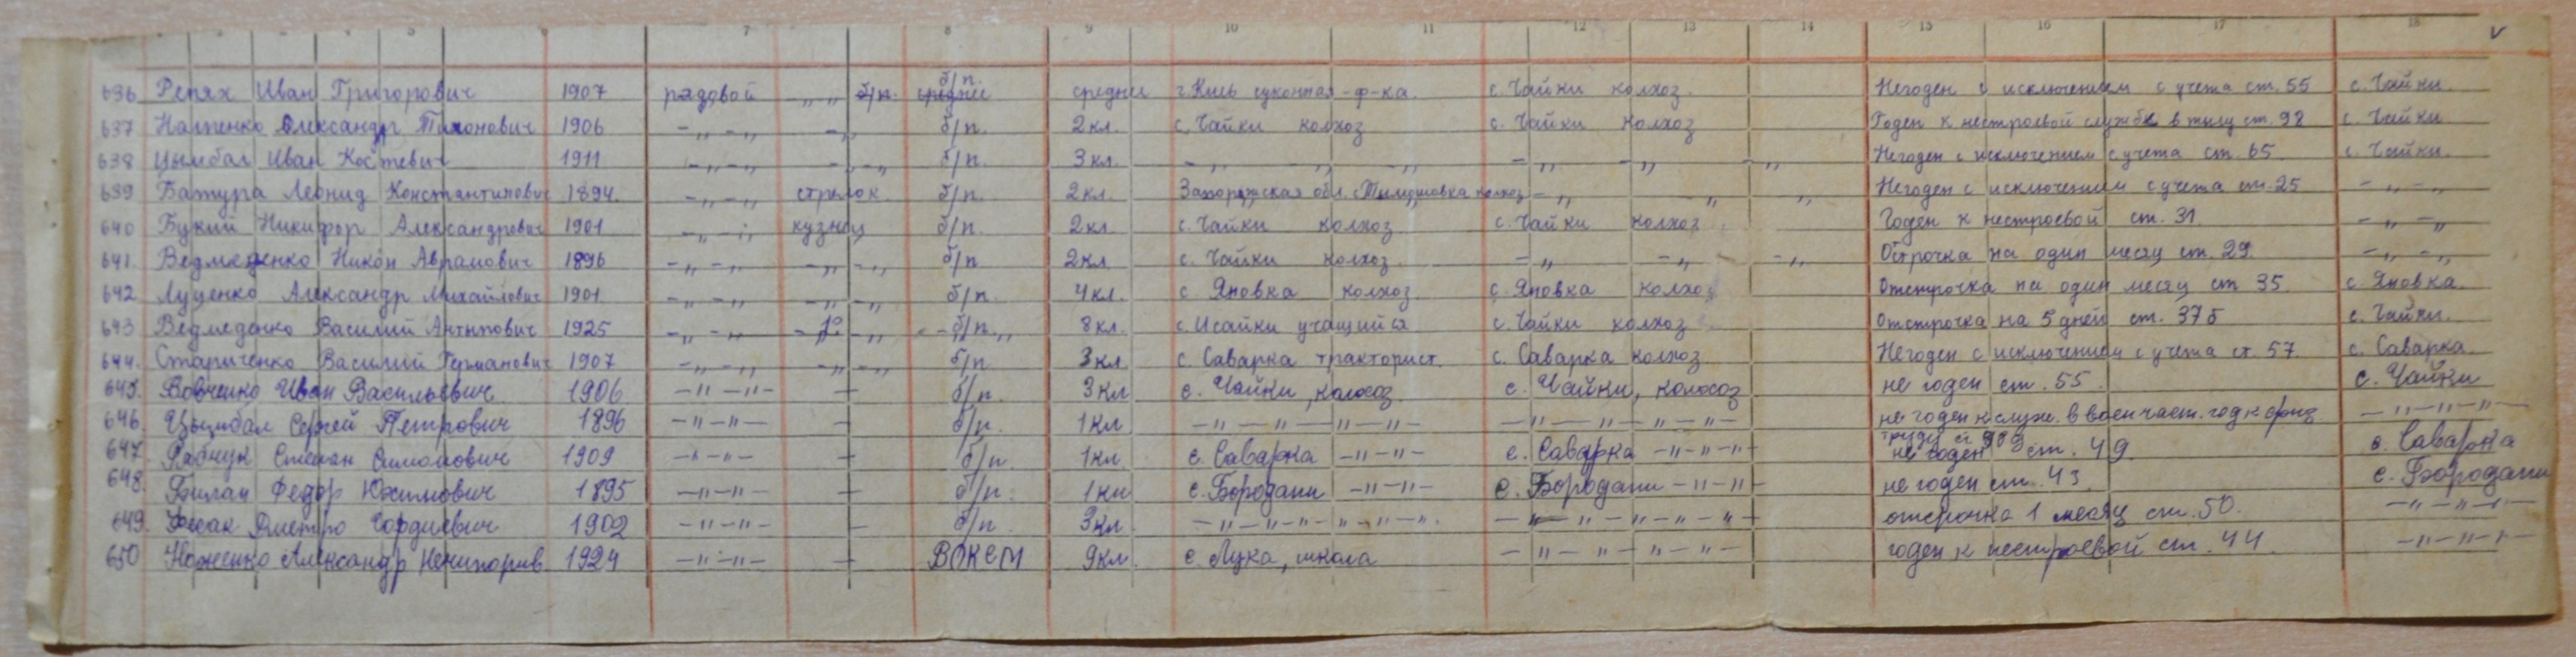 6 7 8 9 10 11 12 13 14 15 16 17 18 v
636 Репях Иван Григорович 1907 рядовой -„-„ б/п. б/п. средние средние г. Киев суконная ф-ка. с. Чайки колхоз. Негоден с исключением с учета ст. 55 с. Чайки.
637 Александр Тихонович 1906 -„-„ -„ б/п. 2 кл. с. Чайки колхоз с. Чайки колхоз Годен к нестроевой службе в тылу ст. 98 с. Чайки
638 Цымбал Иван Костевич 1911 -„-„ -„-„ б/п. 3 кл. -„ „ -„ -„ -„ -„ Негоден с исключением с учета ст. 65 с. Чайки.
639 Батура Леонид Константинович 1894. -„-„ стрелок б/п. 2 кл. Запорожская обл. с. Тимошовка колхоз -„ „ „ Негоден с исключением с учета ст. 25 -„-„
640 Букий Никифор Александрович 1901 -„-„ кузнец б/п. 2 кл с. Чайки колхоз с. Чайки колхоз Годен к нестроевой ст. 31. -„-„
641. Ведмеденко Никон Аврамович 1896 -„-„ -„-„ б/п 2 кл. с. Чайки колхоз. -„ -„ -„ Острочка на один месяц ст. 29. -„-„
642 Луценко Александр Михайлович 1901 -„-„ -„-„ б/п. 4 кл. с. Яновка колхоз с. Яновка колхоз Отстрочка на один месяц ст 35. с. Яновка.
643 Ведмеденко Василий Антипович 1925 -„-„ -„-„ б/п. 8 кл. с. Исайки учащийся с. Чайки колхоз Отстрочка на 5 дней ст. 37б с. Чайки.
644. Стариченко Василий Германович 1907 -„-„ -„-„ б/п 3 кл с. Саварка тракторист. с. Саварка колхоз Негоден с исключением с учета ст. 57 с. Саварка.
645. Вовченко Иван Васильевич 1906 -"-"- — б/п. 3 кл с. Чайки, колхоз с. Чайки, колхоз не годен ст. 55. с. Чайки
646. Цымбал Сергей Петрович 1896 -"-"- — б/п. 1 кл -"-"-"-"- -"-"-"-"- не годен к служ. в воен част. год к физ труду -"-"-"-
647. Рябчук Степан Симонович 1909 -"-"- — б/п. 1 кл с. Саварка -"-"- с. Саварка -"-"-"- не годен ст. 49. с. Саварка
648. Федор Юхимович 1895 -"-"- — б/п. 1 кл с. Бородани -"-"- с. Бородани -"-"- не годен ст. 43 с. Бородани
649. Дмитро Гордиевич 1902 -"-"- — б/п. 3 кл -"-"-"-"-"- -"-"-"-"- отсрочка 1 месяц ст. 50. -"-"-"-
650 Александр 1924 -"-"- — ВЛКСМ 9 кл. с. Лука, школа -"-"-"-"- годен к нестроевой ст. 44. -"-"-"-